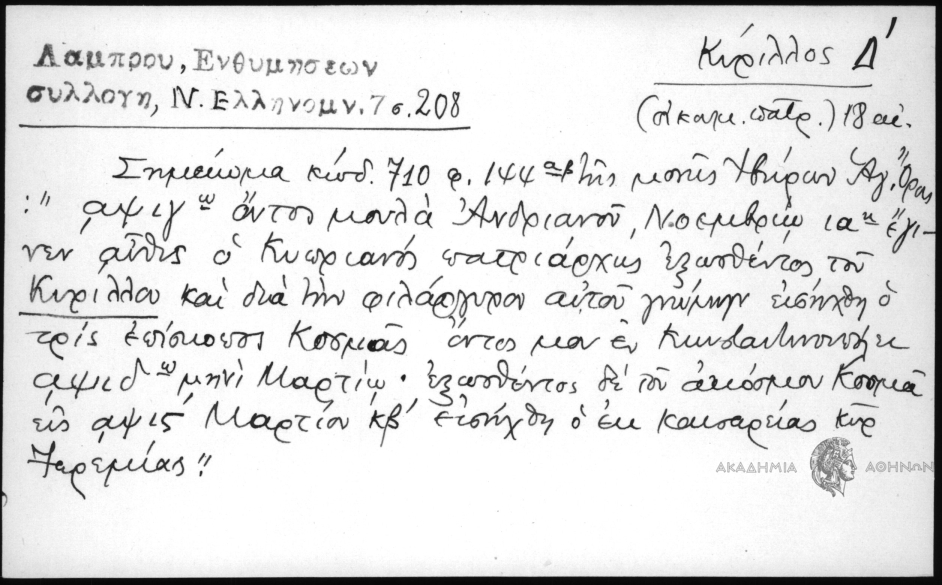 Λαμπρου, Ενθυμησεων
συλλογη, Ν. Ελληνομν. 7 σ. 208
Κύριλλος Δ΄
(οἰκουμ. πατρ.) 18 αἰ.
Σημείωμα κώδ. 710 φ. 144 αβ τῆς μονῆς Ἰβήρων Ἁγ. Ὄρους
:" αψιγω ὄντος μουλᾶ Ἀνδριανοῦ, Νοεμβρίῳ ιαη ἔγι-
νεν αὖθις ὁ Κυπριανός πατριάρχης ἐξωσθέντος τοῦ
Κυρίλλου καὶ διὰ τὴν φιλάργυρον αὐτοῦ γνώμην εἰσήχθη ὁ
τρίς ἐπίσκοπος Κοσμᾶς ὄντος μου ἐν Κωνσταντινουπόλει
αψιδω μηνὶ Μαρτίῳ · ἐξωσθέντος δέ τοῦ ἀκόσμου Κοσμᾶ
εἰς αψιϛ΄ Μαρτίου κβ΄ εἰσήχθη ὁ ἐκ Καισαρείας κύρ
Ἱερεμίας"
ΑΚΑΔΗΜΙΑ ΑΘΗΝΩΝ